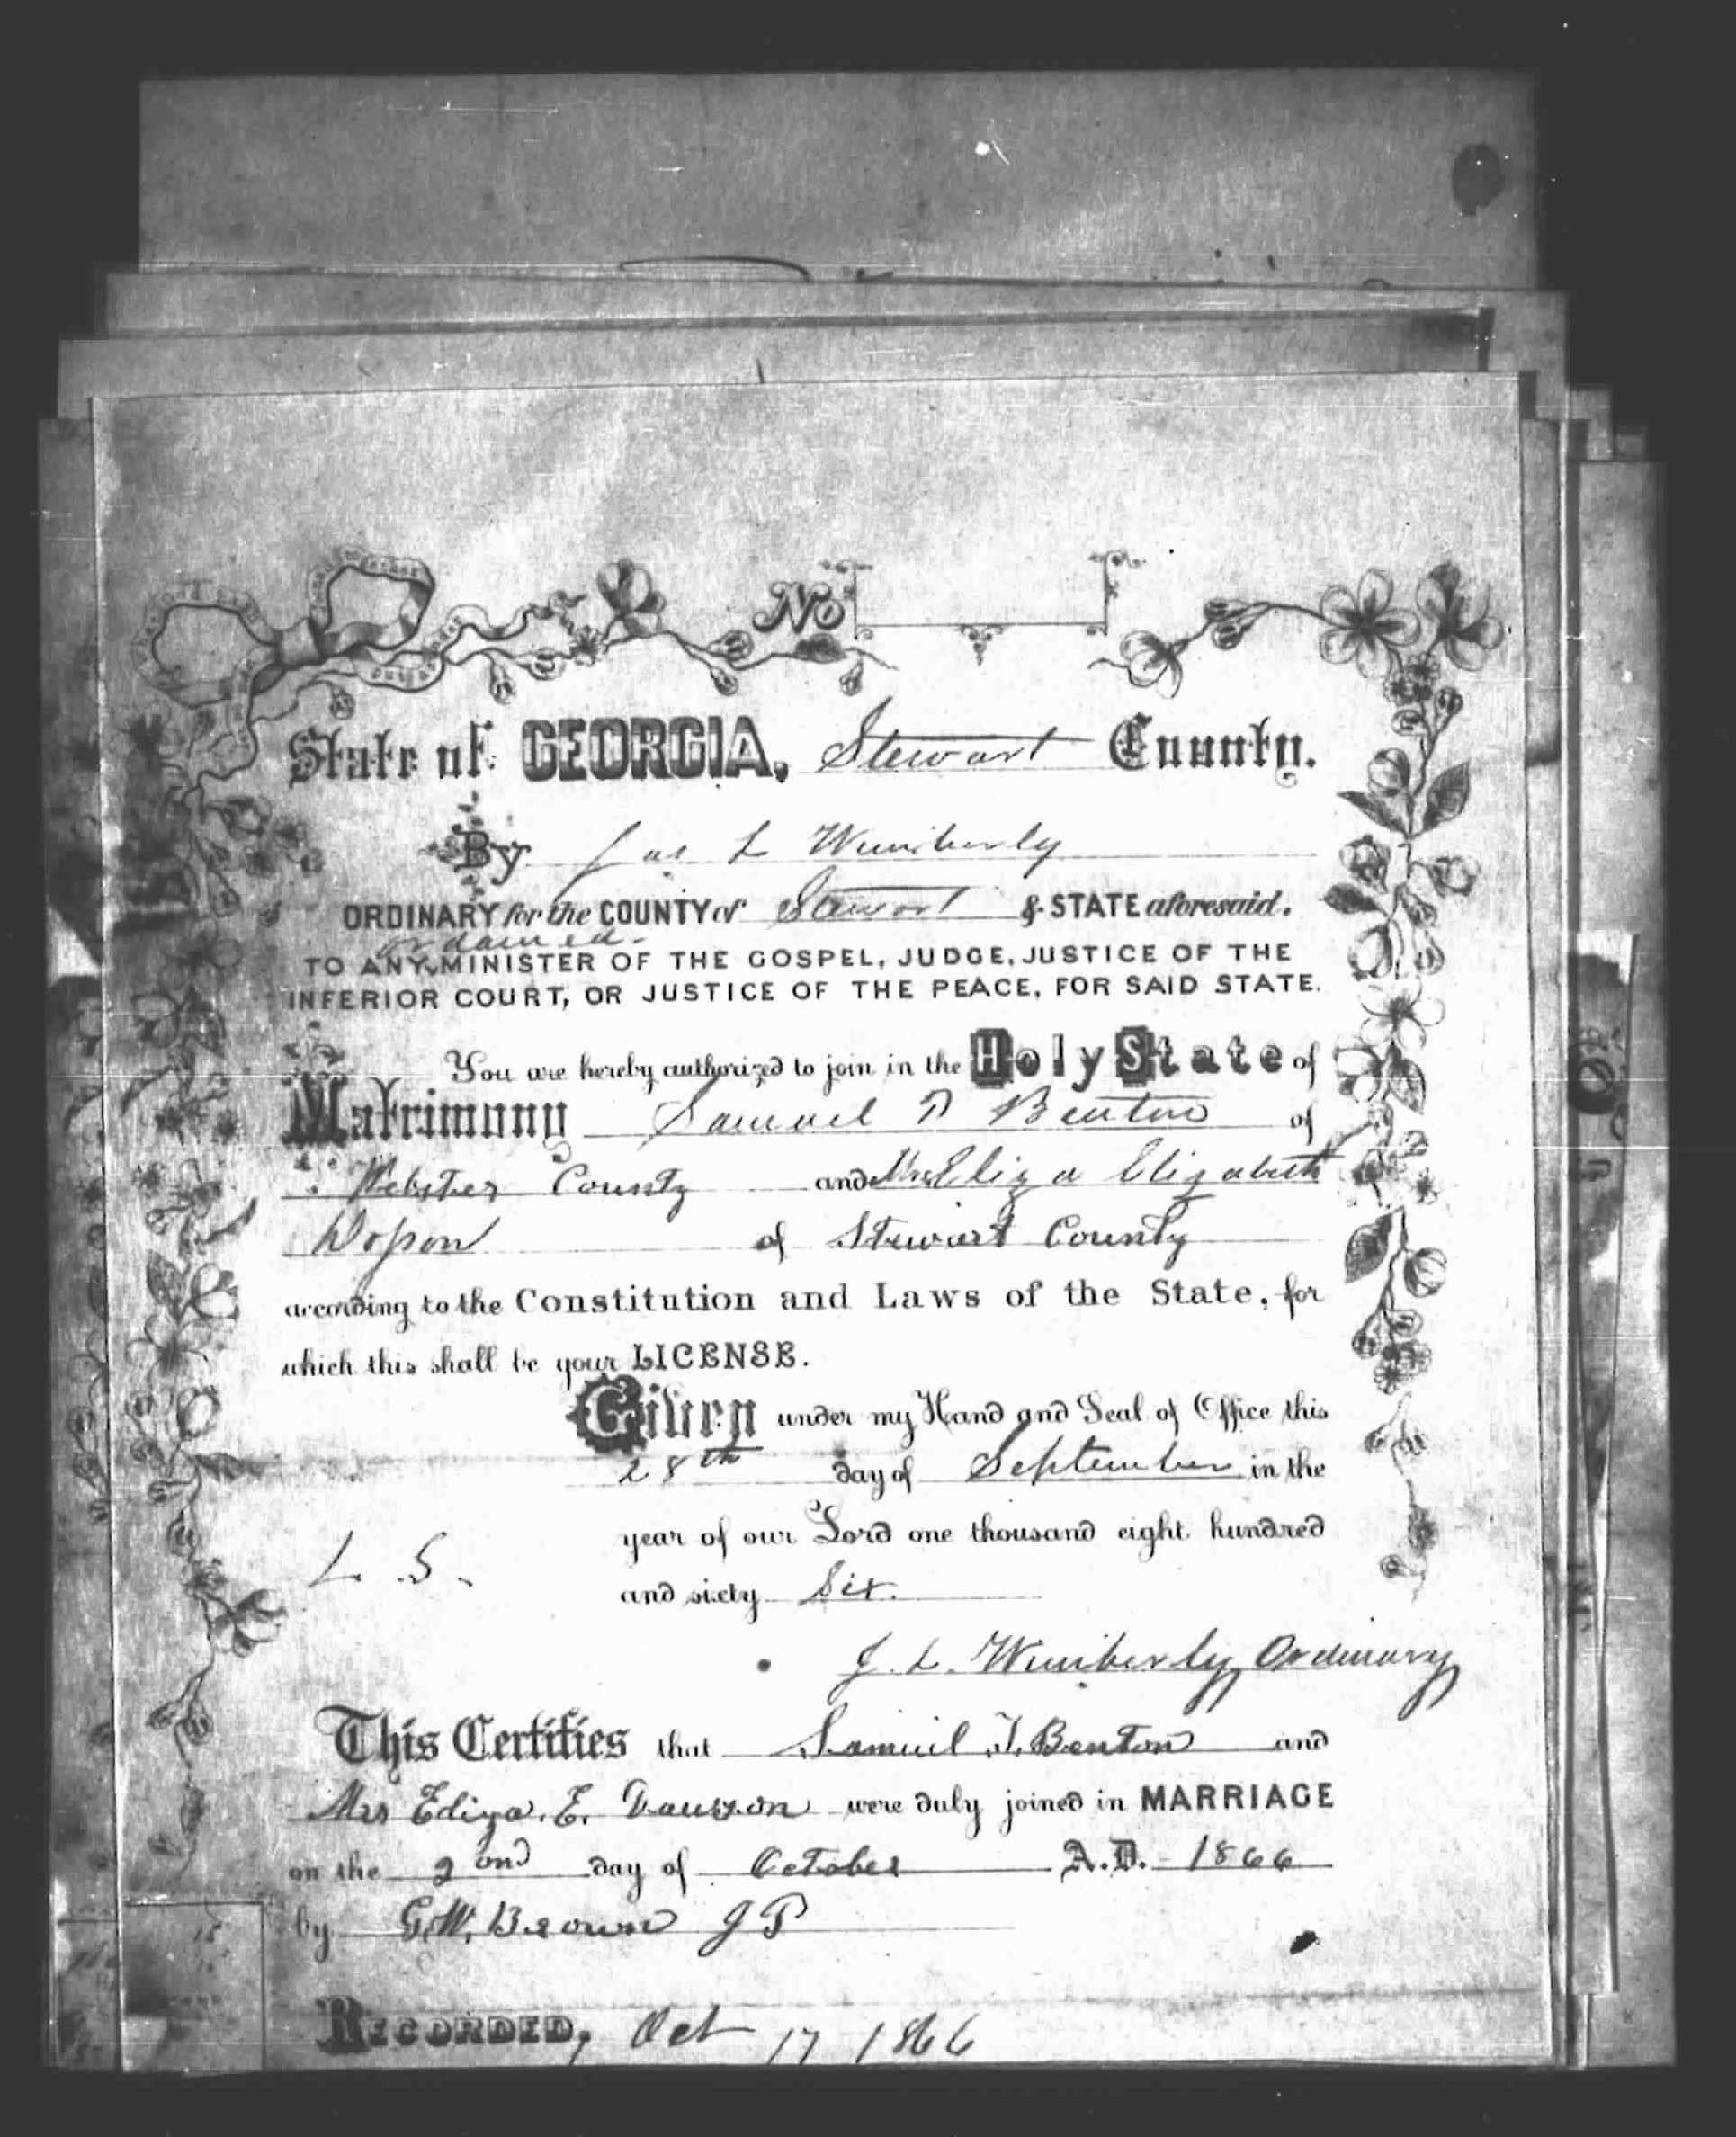 No
State of GEORGIA, Stewart County.
By Jas L Wimberly
ORDINARY for the COUNTY of Stewart & STATE aforesaid.
ordained
TO ANY MINISTER OF THE GOSPEL, JUDGE, JUSTICE OF THE
INFERIOR COURT, OR JUSTICE OF THE PEACE, FOR SAID STATE.
You are hereby authorized to join in the Holy State of
Matrimony Samuel Benton of
Webster County and Mrs Eliza Elizabeth
of Stewart County
according to the Constitution and Laws of the State, for
which this shall be your LICENSE.
Given under my Hand and Seal of Office this
28th day of September in the
year of our Lord one thousand eight hundred
L. S.
and sixty Six.
J. L. Wimberly Ordinary
This Certifies that Samuel J. Benton and
Mrs Ediza. E. were duly joined in MARRIAGE
on the 2ond day of October A.D. 1866
by G.W. Brown J P
RECORDED, Oct 17 1866